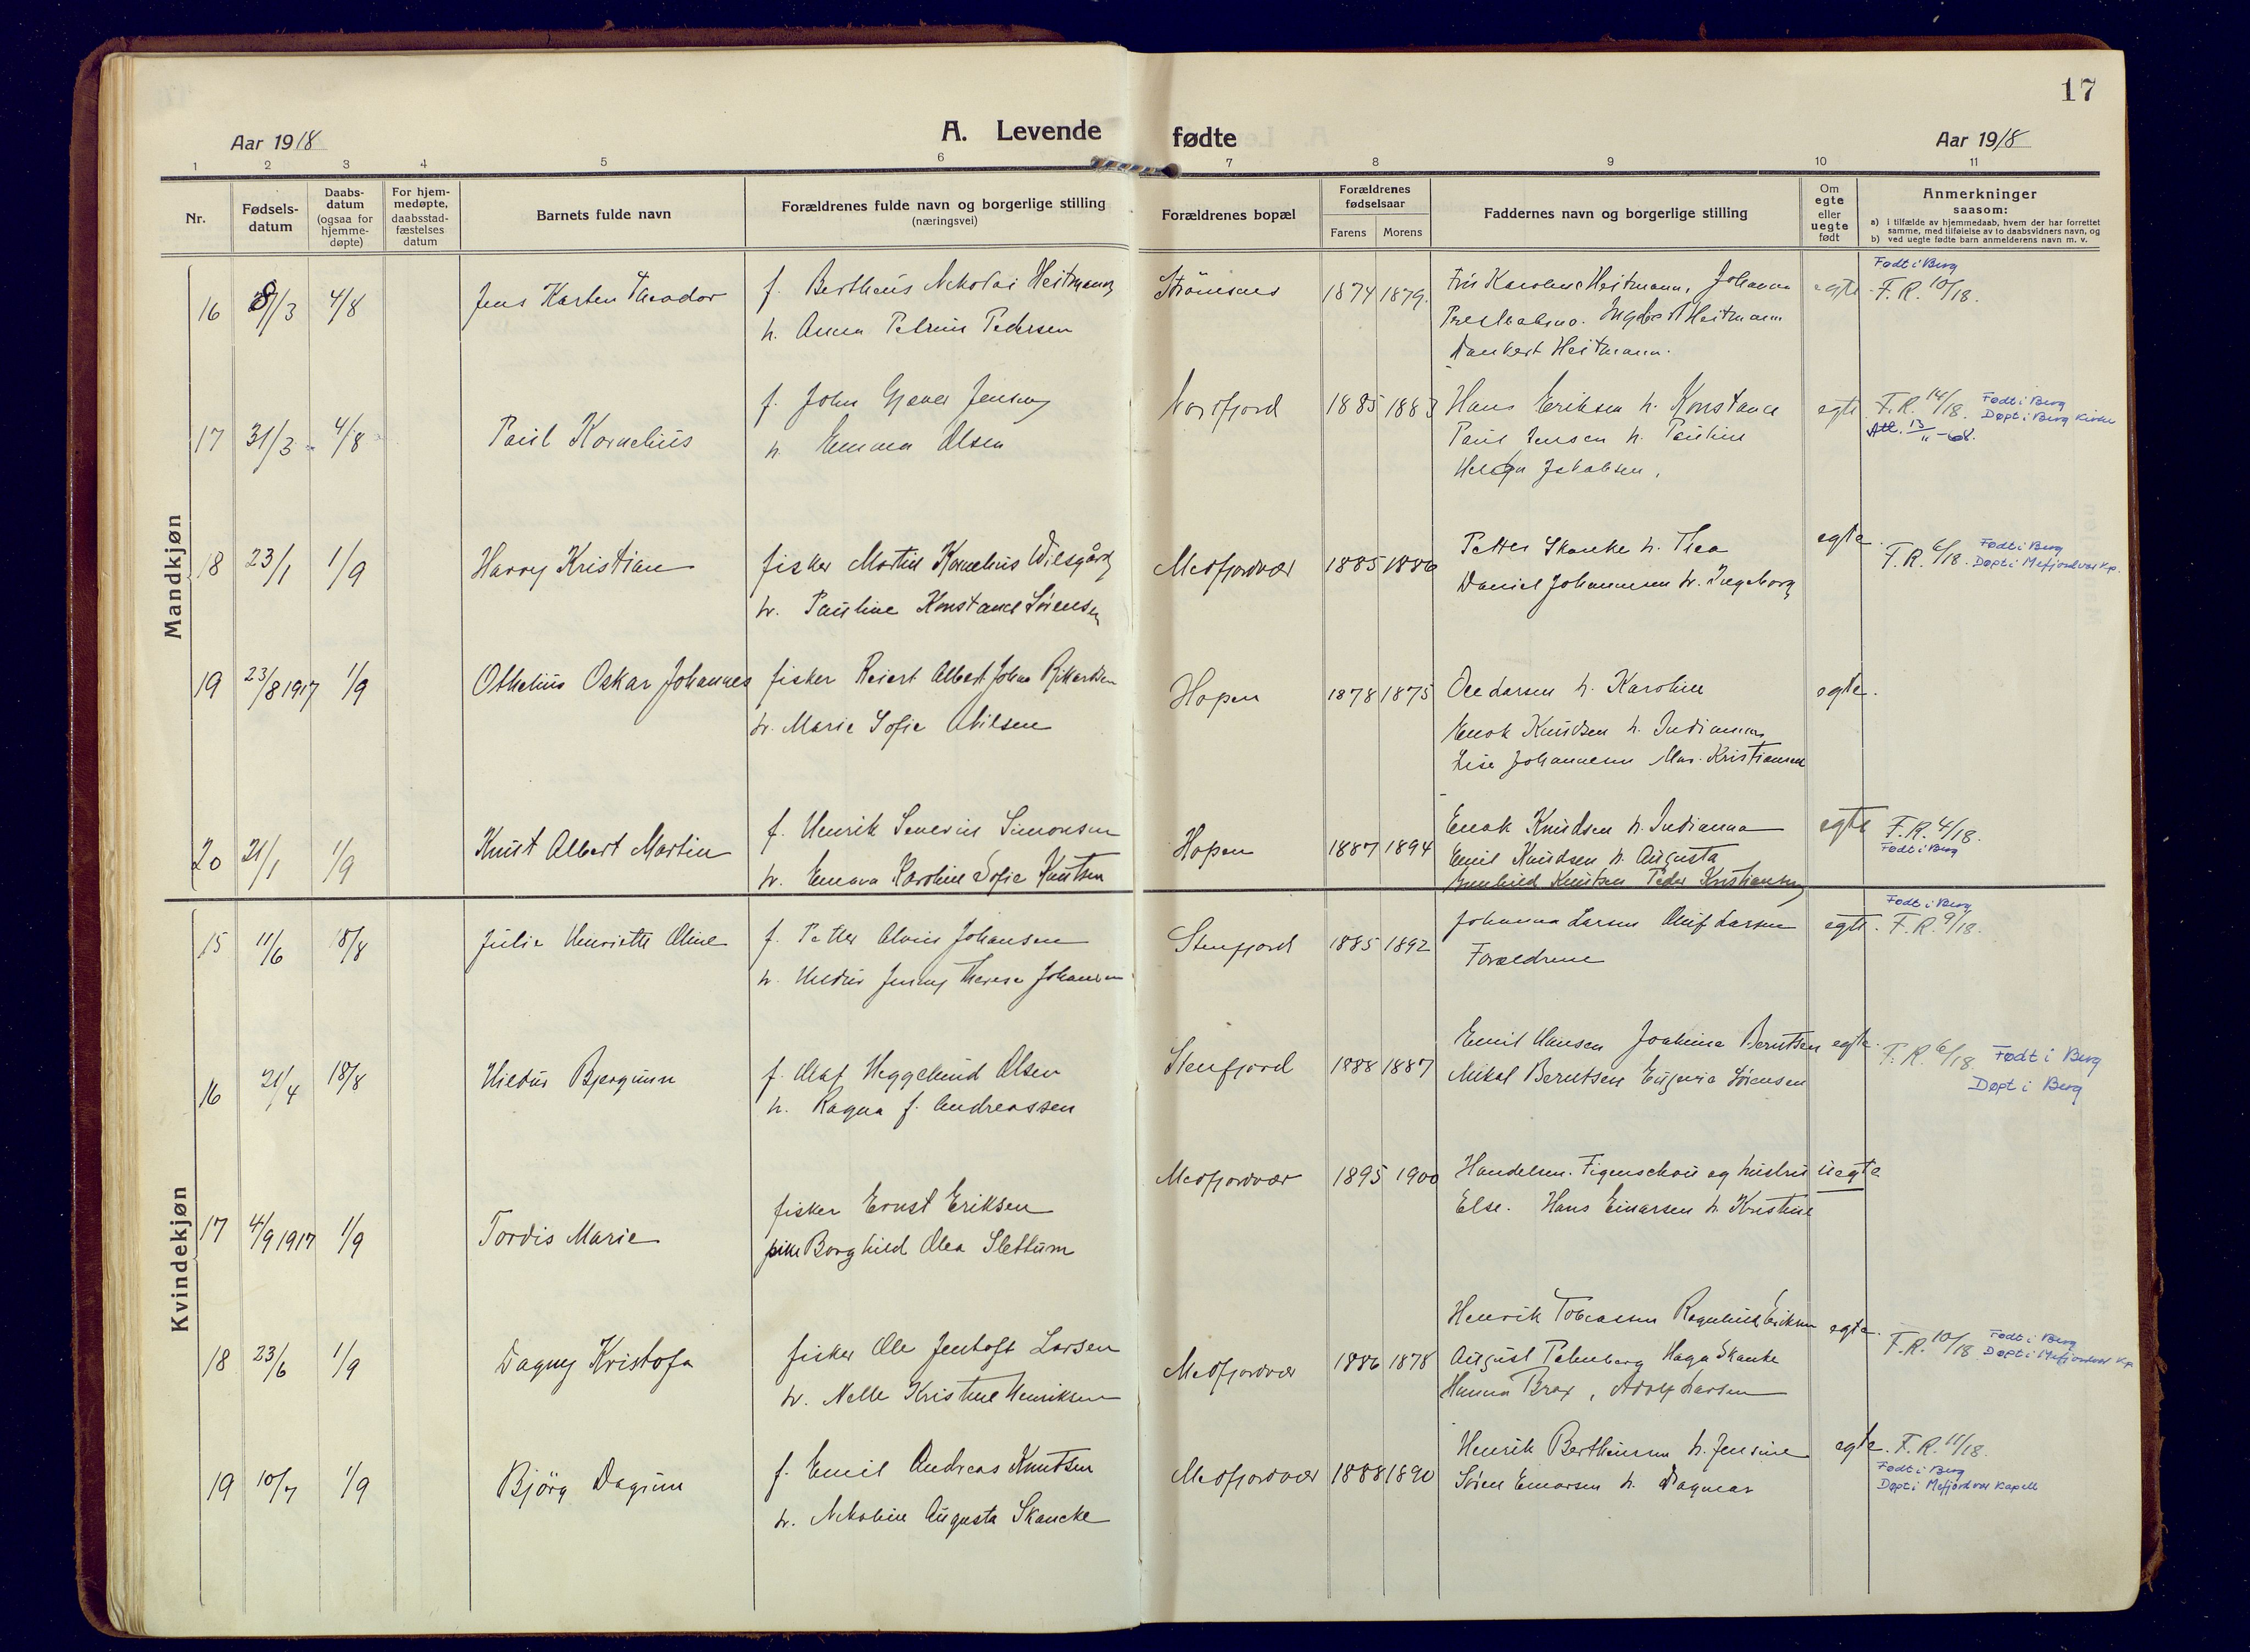 17
A. Levende fødte
Aar 1918
Aar 1918
1 2 3 4 5 6 7 8 9 10 11
Nr.
Fødsels-
datum
Daabs-
datum
(ogsaa for
hjemme-
døpte)
For hjem-
medøpte,
daabsstad-
fæstelses
datum
Barnets fulde navn
Forældrenes fulde navn og borgerlige stilling
(næringsvei)
Forældrenes bopæl
Forældrenes
fødselsaar
Farens Morens
Faddernes navn og borgerlige stilling
Om
egte
eller
uegte
født
Anmerkninger
saasom:
a) i tilfælde av hjemmedaab, hvem der har forrettet
samme, med tilføielse av to daabsvidners navn, og
b) ved uegte fødte barn anmelderens navn m. v.
Mandkjøn
16 8/3 4/8 Jens Karten Theodor
f. Bertheus Nikolai Heitmann
h. Anna Petrine Pedersen
Strømsnes 1874 1879
Karoline Heitmann, Johanna
Ingbert Heitmann
Dankert Heitmann.
egte
Født i Berg
F.R. 10/18.
17 31/3 4/8 Paul Kornelius
f. John Gjæver Jensen
h. Emma Olsen
1885 1883
Hans Eriksen h. Konstance
Paul Jensen h. Pauline
Helga Jakobsen.
egte
F.R. 14/18. Født i Berg
Døpt i Berg Kirke
Att. 13/11-68.
18 23/1 1/9 Harry Kristian
fisker Martin Kornelius Wilsgård
h. Pauline Konstance Sørensen
Medfjordvær 1885 1886
Petter Skanke h. Thea
Daniel Johannesen h. Ingeborg
egte.
F.R. 6/18. Født i Berg
Døpt i Mefjordvær Kp.
19 23/8 1917 1/9 Othelius Oskar Johannes
fisker Reiert Albert Johan Rikartsen
h. Marie Sofie Nilsen
Hopen 1878 1875
Ole Larsen h. Karoline
Enok Knudsen h. Indianna
Lise Johannesen Mar. Kristiansen
egte.
20 21/1 1/9 Knut Albert Martin
f. Henrik Severin Simonsen
h. Emma Karoline Sofie Knutsen
Hopen 1887 1894
Enok Knudsen h. Indianna
Emil Knudsen h. Augusta
Gunhild Knutsen Peder Kristiansen
egte
F.R. 4/18.
Født i Berg
Kvindekjøn
15 11/6 18/8 Julie Henriette Oline
f. Petter Alvin Johansen
h. Huldur Jenny Therese Johansen
Stenfjord 1885 1892
Johanna Larsen Oluf Larsen
Forældrene
egte.
Født i Berg
F.R. 9/18.
16 21/4 18/8 Hildur Bjørgunn
f. Olaf Heggelund Olsen
h. Ragna f. Andreassen
Stenfjord 1888 1887
Emil Hansen Joakima Berntsen
Mikal Berntsen Eugenie Sørensen
egte.
F.R. 6/18. Født i Berg
Døpt i Berg
17 4/9 1917 1/9 Tordis Marie
fisker Ernst Eriksen
pike Borghild Olea Slettum
Medfjordvær 1895 1900
Handelsm. Figenschou og hustru
Else. Hans Einarsen h. Kristine
uegte
18 23/6 1/9 Dagny Kristofa
fisker Ole Jentoft Larsen
h. Nelle Kristine Henriksen
Medfjordvær 1886 1878
Henrik Tobiassen Ragnhild Eriksen
August Palmberg Haga Skanke
Hanna Brox, Adolf Larsen
egte.
F.R. 10/18 Født i Berg
Døpt i Mefjordvær Kp
19 10/7 1/9 Bjørg Dagrun
f. Emil Andreas Knutsen
h. Nikoline Augusta Skancke
Medfjordvær 1888 1890
Henrik Bertheussen h. Jensine
Søren Einarsen h. Dagmar
egte.
F.R. 11/18.
Født i Berg
Døpt i Mefjordvær Kapell